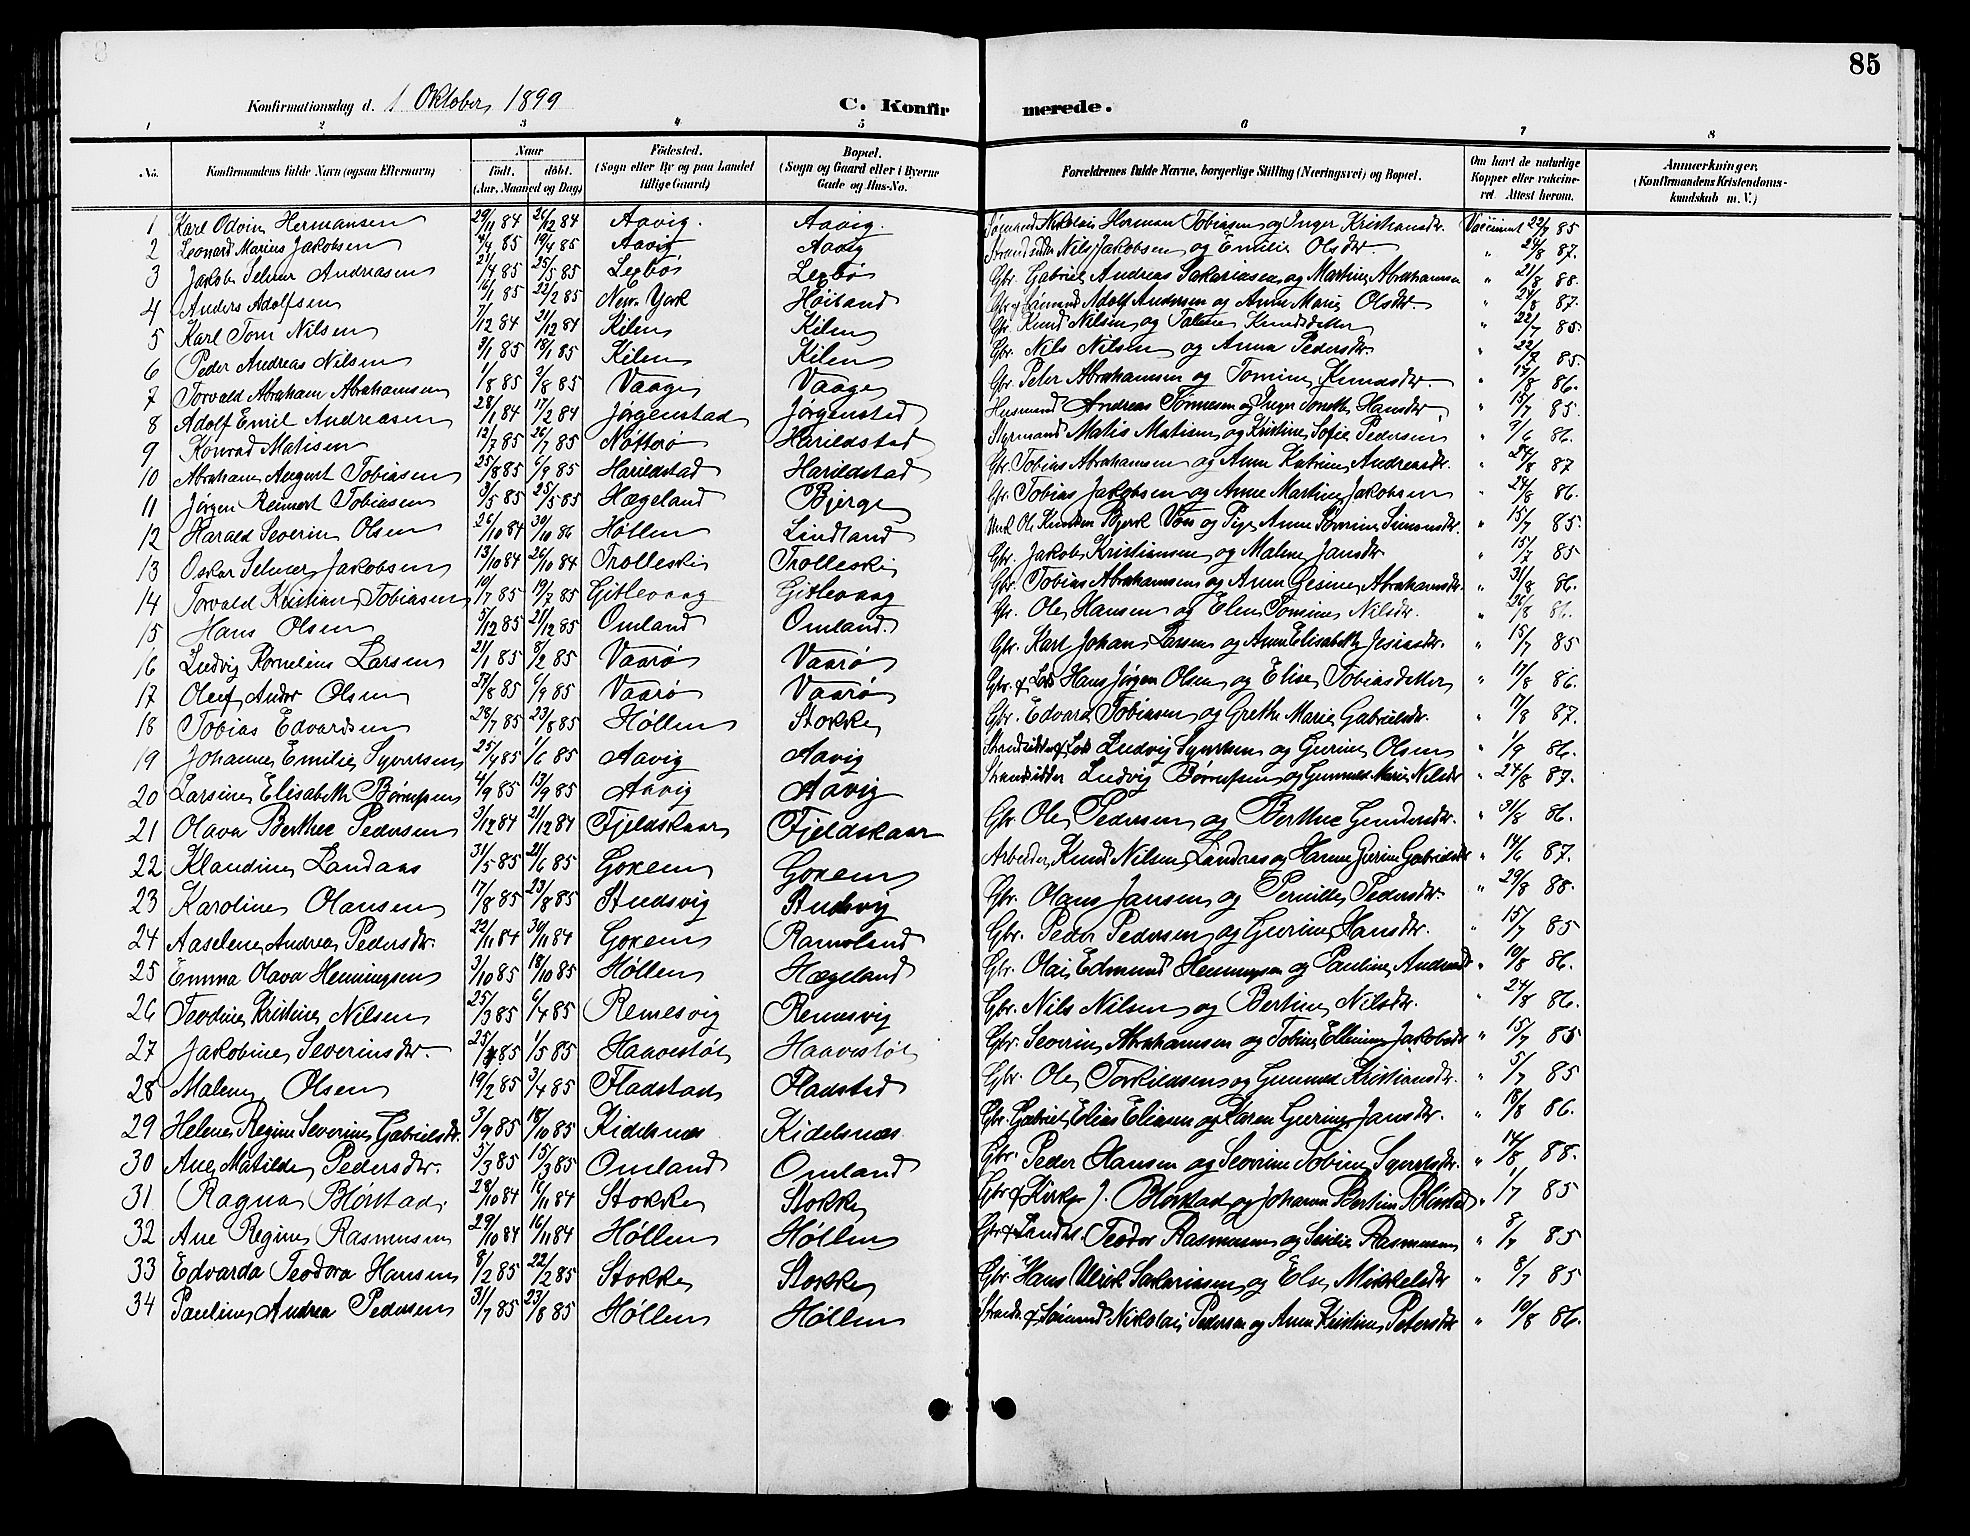 85
Konfirmationsdag d. 1 Oktober 1899 C. Konfirmerede.
1 2 3 4 5 6 7 8
No. Konfirmandens fulde Navn (ogsaa Efternavn) Naar født. døbt. (Aar, Maaned og Dag) Fødested. (Sogn eller By og paa Landet tillige Gaard) Bopæl. (Sogn og Gaard eller i Byerne Gade og Hus-No. Forældrenes fulde Navne, borgerlige Stilling (Næringsvei) og Bopæl. Om havt de naturlige Kopper eller vakcineret. Attest herom. Anmærkninger. (Konfirmandens Kristendomskundskab m. V.)
1 Karl Odvin Hermansen 29/11 84 26/12 84 Aavig. Aavig. Sømand Nikolai Herman Tobiasen og Inger Kristiansdr. Vaccineret 22/7 85
2 Leonard Marius Jakobsen 4/4 85 19/4 85 Aavig Aavig Strandsidder Nils Jakobsen og Emilie Olsdr. " 24/8 87.
3 Jakob Selmer Andreasen 21/4 85 25/5 85 Legbø Legbø Gbr. Gabriel Andreas Sakariasen og Martine Abrahamsen " 21/8 88.
4 Anders Adolfsen 16/1 85 22/2 85 New-York Høiland Gbr. & Sømand Adolf Andersen og Anne Marie Olsdr. " 24/8 87.
5 Karl Tom Nilsen 7/12 84 21/12 84 Kilen Kilen Gbr. Knud Nilsen og Talene Knudsdatter " 22/7 85.
6 Peder Andreas Nilsen 3/1 85 18/1 85 Kilen Kilen Gbr. Nils Nilsen og Anna Pedersdr. " 22/7 85.
7 Torvald Abraham Abrahamsen 1/8 85 2/8 85 Vaage Vaage Gbr. Peter Abrahamsen og Tomine Knudsdr. " 13/8 86.
8 Adolf Emil Andreasen 28/1 84 17/2 84 Jørgenstad Jørgensted Husmand Andreas Tønnesen og Inger Tonette Hansdr " 15/7 85.
9 Konrad Matisen 12/7 85 26/7 85 Nøtterø Harildstad Styrmand Matis Matisen og Kristine Sofie Pedersen " 9/6 86.
10 Abraham August Tobiasen 25/8 85 6/9 85 Harildstad Harildstad Gbr. Tobias Abrahamsen og Anne Katrine Andreasdr. " 24/8 87
11 Jørgen Reinert Tobiasen 3/5 85 25/5 85 Hægeland Bjerge Gbr. Tobias Jakobsen og Anne Martine Jakobsen " 24/8 86.
12 Harald Severin Olsen 26/10 84 30/10 86 Høllen Lindland Ole Knudsen Bjerk Voss og Pige Anne Tomine Simonsdr. " 15/7 85.
13 Oskar Selmer Jakobsen 13/10 84 26/10 84 Trolleski Trolleski Gbr. Jakob Kristiansen og Malene Jansdr " 15/7 85
14 Torvald Kristian Tobiasen 10/7 85 19/7 85 Gitlevaag Gitlevaag Gbr. Tobias Abrahamsen og Anne Gesine Abrahamsdr. " 31/8 86.
15 Hans Olsen 5/12 85 21/12 85 Omland Omland. Gbr. Ole Hansen og Elen Tomine Nilsdr. " 26/8 86.
16 Ludvig Kornelius Larsen 21/1 85 8/2 85 Vaarø Vaarø Gbr. Karl Johan Larsen og Ane Elisabeth Jesiasdr. " 15/7 85
17 Oluf Andor Olsen 27/8 85 6/9 85 Vaarø Vaarø Gbr. & Lods Hans Jørgen Olsen og Elise Tobiasdatter " 17/8 86.
18 Tobias Edvardsen 28/7 85 23/8 85 Høllen Stokke Gbr. Edvard Tobiasen og Grethe Marie Gabrielsdr. " 7/8 87.
19 Johanne Emilie Syvertsen 25/4 85 1/6 85 Aavig Aavig Strandsidder & Lods Ludvig Syvertsen og Gurine Olsen " 1/9 86.
20 Larsine Elisabeth Børrufsen 4/9 85 13/9 85 Aavig Aavig Strandsidder Ludvig Børrufsen og Gunnild Marie Nilsdr " 24/8 87.
21 Olava Berthee Pedersen 3/12 84 21/12 84 Fjeldskaar Fjeldskaar Gbr. Ole Pedersen og Berthee Gundersdr. " 31/8 86.
22 Klaudine Landaas 31/5 85 21/6 85 Goxem Goxem Arbeider Knud Nilsen Landaas og Hanne Gurine Gabrielsdr " 14/6 87.
23 Karoline Olausen 17/8 85 23/8 85 Studsvig Studsvig Gbr. Olaus Jansen og Pernille Pedersdr. " 29/8 88.
24 Aaselene Andrea Pedersdr. 22/11 84 30/11 84 Goxem Ramsland Gbr. Peder Pedersen og Gurine Hansdr. " 15/7 85
25 Emma Olava Henningsen 3/10 85 18/10 85 Høllen Hægeland Gbr. Olai Edmund Henningsen og Pauline Andreasdr " 10/8 86.
26 Teodine Kristine Nilsen 25/3 85 6/4 85 Remesvig Remesvig Gbr. Nils Nilsen og Bertine Nilsdr. " 24/8 86.
27 Jakobine Severinsdr. 25/4 85 1/5 85 Haavestøl Haavestøl Gbr. Severin Abrahamsen og Tobine Elleine Jakobsdr " 15/7 85
28 Malene Olsen 19/2 85 3/4 85 Fladstad Fladsted Gbr. Ole Torkildsen og Gunnild Kristiansdr. " 5/7 85
29 Helene Regine Severine Gabrielsdr. 3/9 85 18/10 85 Kidelsnæs Kidelsnæs Gbr Gabriel Elias Eliasen og Karen Gurine Jansdr. " 18/8 86.
30 Ane Matilde Pedersdr. 5/3 85 15/3 85 Omland Omland Gbr. Peder Hansen og Severine Tobine Syvertsdr. " 14/8 88.
31 Ragna Blørstad. 28/10 84 16/11 84 Stokke Stokke Gbr & Kirkesr J. Blørstad og Johanne Bertine Blørstad " 1/7 85
32 Ane Regine Rasmusen 29/10 84 16/11 84 Høllen Høllen Gbr & Landh. Teodor Rasmusen og Sesilie Rasmusen " 8/7 85
33 Edvarda Teodora Hansen 8/2 85 22/2 85 Stokke Stokke Gbr Hans Ulrik Sakariasen og Else Mikkelsdr " 8/7 85
34 Pauline Andrea Pedersen 31/7 85 23/8 85 Høllen Høllen Strands. & Sømand Nikolai Pedersen og Anne Kristine Petersdr " 10/8 86.